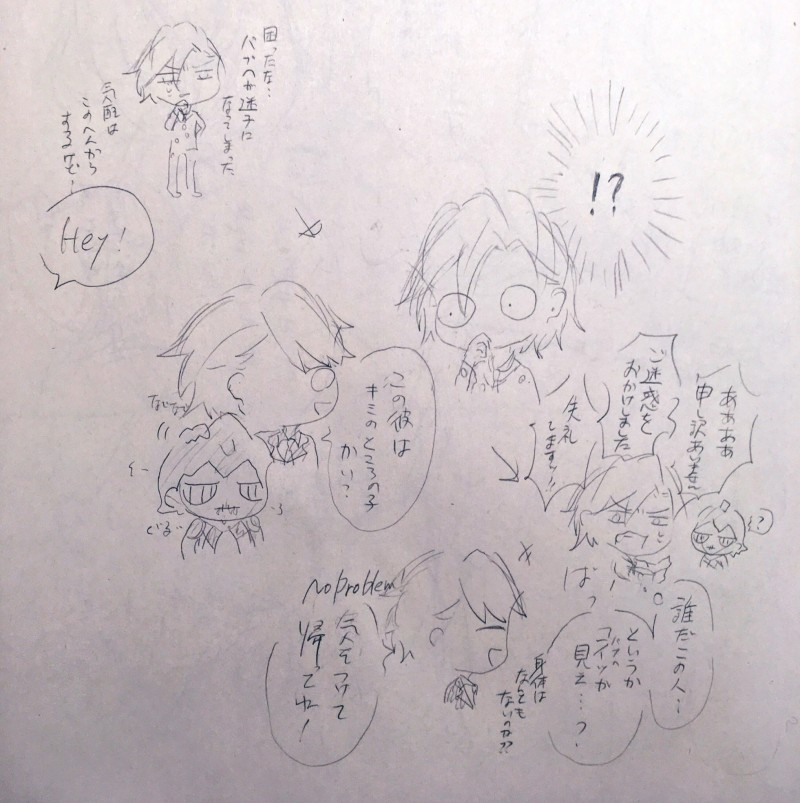 困ったな…
バプへが迷子に
なってしまった
気配は
この人から
するけど…
Hey!
!?
なでなで
この彼は
キミのところの子
かい?
ぐる
ああああ
申し訳ありません
ご迷惑を
おかけしました
失礼
します!!
ばっ
?
誰だこの人…
というか
コイツが
見え…?
身体は
なんとも
ないのか??
No problem
気をつけて
帰ってね!